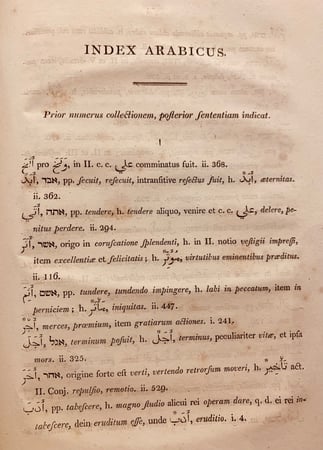 INDEX ARABICUS.
Prior numerus collectionem, posterior sententiam indicat.
ا
pro وَبَّخَ, in II. c. c. علي comminatus fuit. ii. 368.
أَبَدَ, אבד, pp. secuit, resecuit, intransitive resectus fuit, h. أَبَدٌ, æternitas.
ii. 362.
أَتَي, אתה, pp. tendere, h. tendere aliquo, venire et c. c. علي, delere, pe-
nitus perdere. ii. 294.
אשר, origo in coruscatione splendenti, h. in II. notio vestigii impressi,
item excellentiæ et felicitatis; h. virtutibus eminentibus præditus.
ii. 116.
אשם, pp. tundere, tundendo impingere, h. labi in peccatum, item in
perniciem; h. iniquitas. ii. 447.
أَجْر, merces, præmium, item gratiarum actiones. i. 241.
أَجَلَ, אגל, terminum posuit, h. أَجَلٌ, terminus, peculiariter vitæ, et ipsa
mors. ii. 325.
אחר, origine forte est verti, vertendo retrorsum moveri, h. تأخير act.
II. Conj. repulsio, remotio. ii. 529.
pp. tabescere, h. magno studio alicui rei operam dare, q. d. ei rei in-
tabescere, dein eruditum esse, unde أَدَب, eruditio. i. 4.